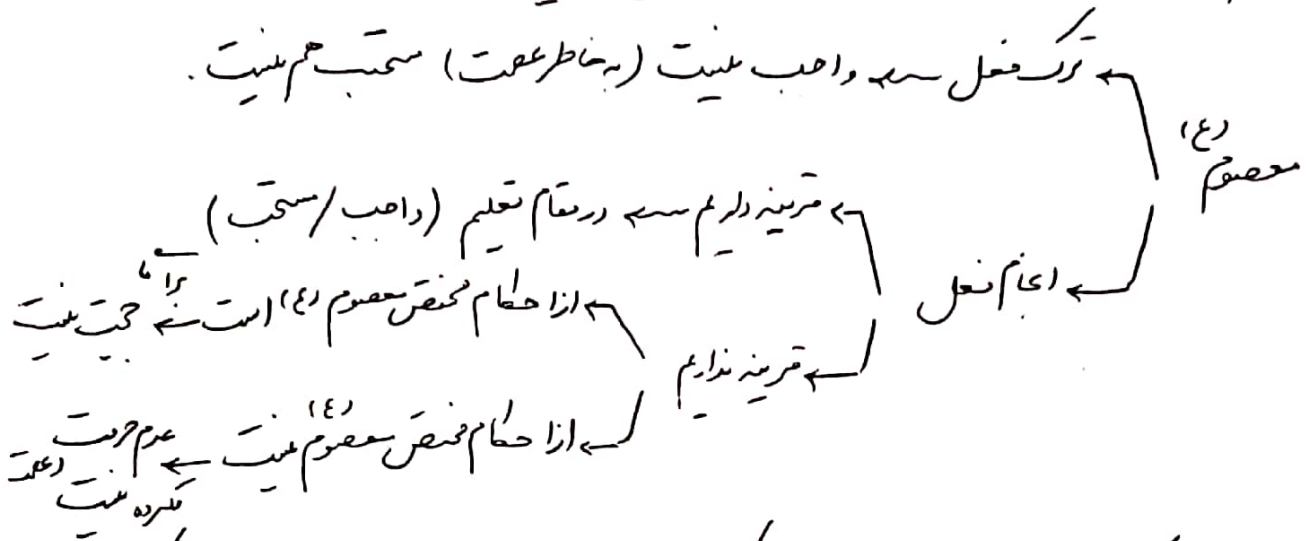 معصوم (ع)
ترک فعل ← واجب نیست (به خاطر عصمت) مستحب هم نیست.
انجام فعل
قرینه داریم ← در مقام تعلیم (واجب/مستحب)
قرینه نداریم
از احکام مختص معصوم (ع) است ← برا ما حجت نیست
از احکام مختص معصوم (ع) نیست ← عدم حرمت
مکروه نیست